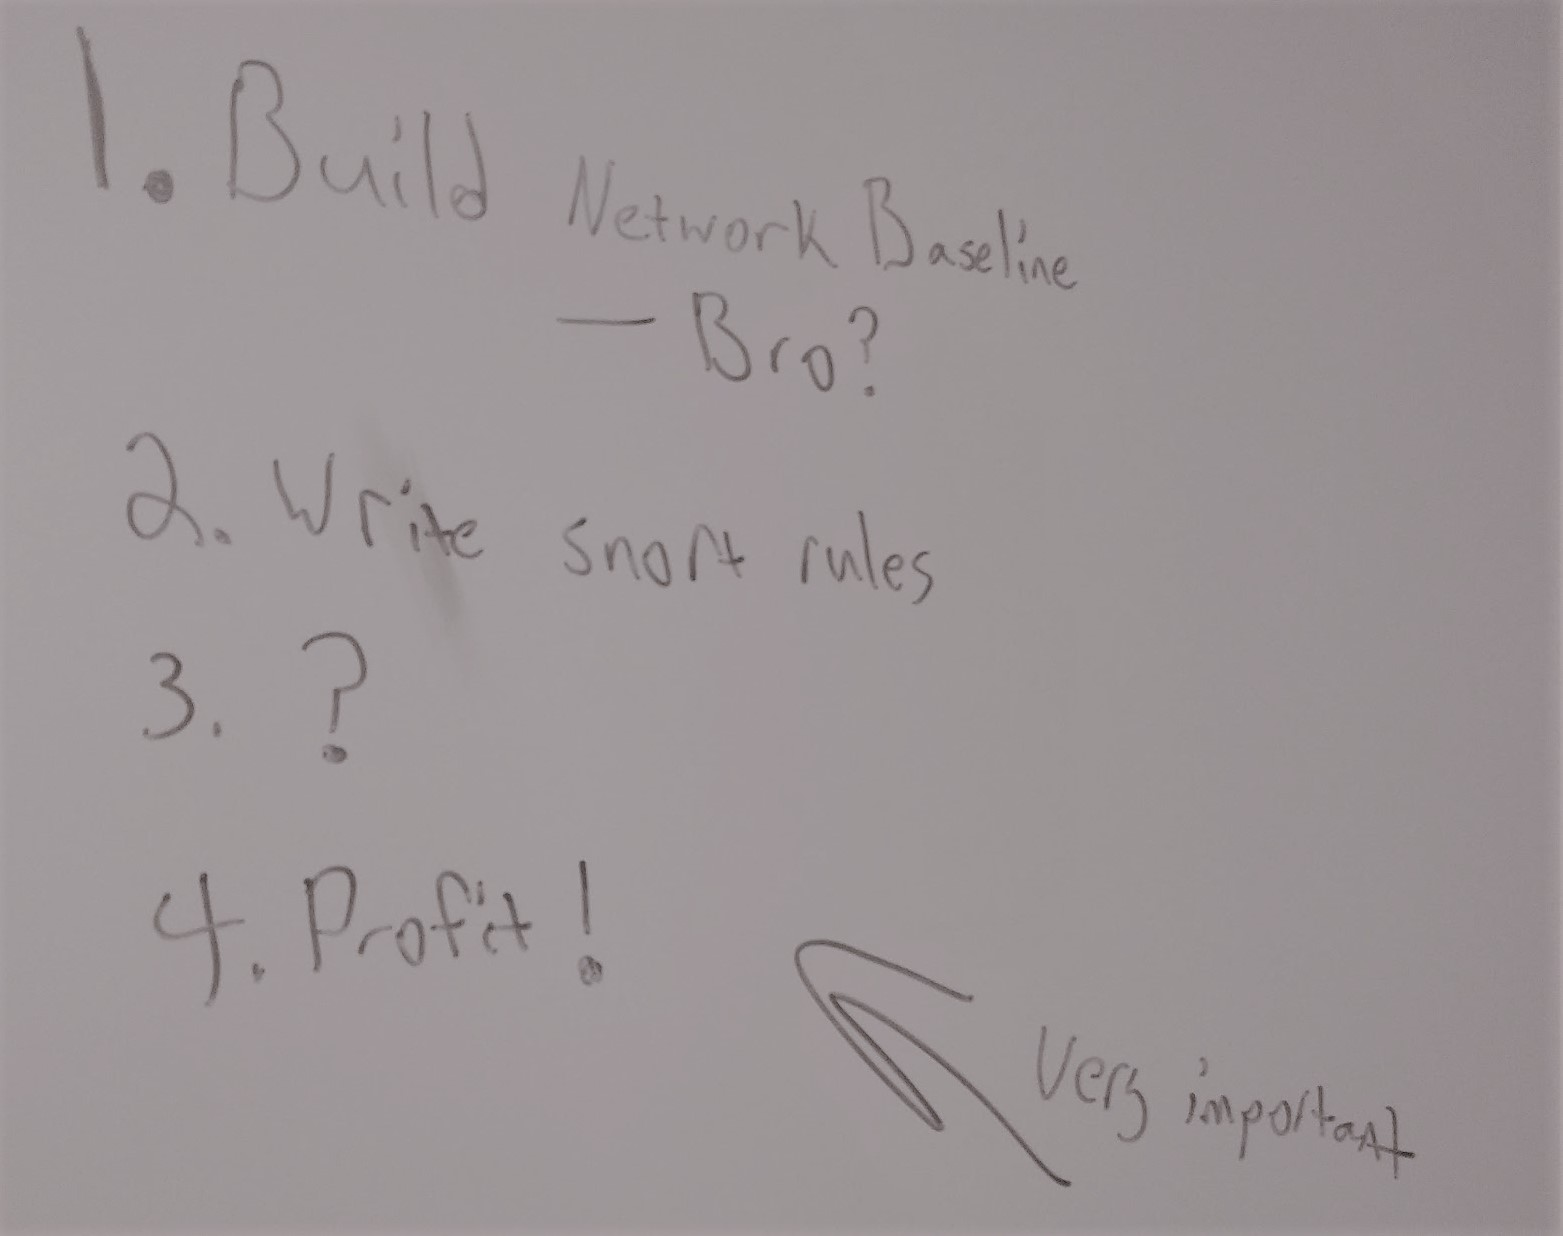 1. Build Network Baseline
— Bro?
2. Write snort rules
3. ?
4. Profit!
Very important